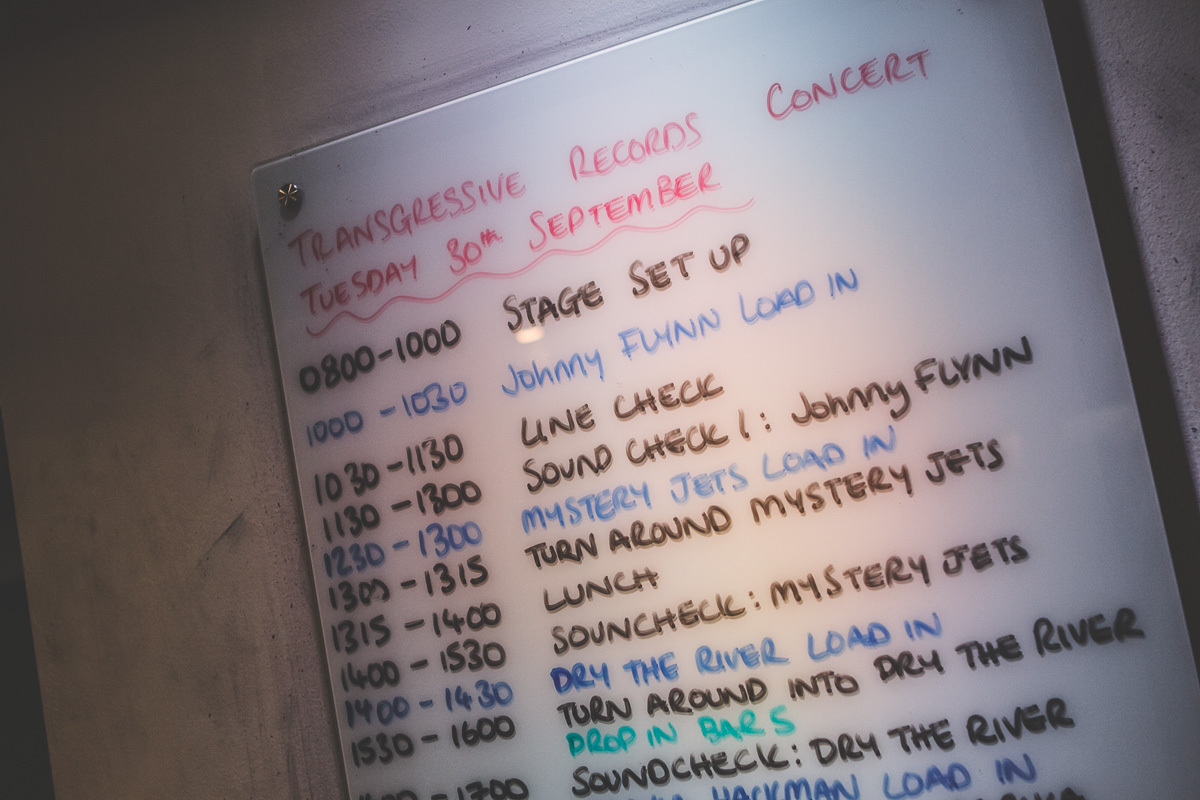 TRANSGRESSIVE RECORDS CONCERT
TUESDAY 30th SEPTEMBER
0800-1000 STAGE SET UP
1000-1030 Johnny FLYNN LOAD IN
1030-1130 LINE CHECK
1130-1300 SOUND CHECK 1: Johnny FLYNN
1230-1300 MYSTERY JETS LOAD IN
1300-1315 TURN AROUND MYSTERY JETS
1315-1400 LUNCH
1400-1530 SOUNCHECK: MYSTERY JETS
1400-1430 DRY THE RIVER LOAD IN
1530-1600 TURN AROUND INTO DRY THE RIVER
DROP IN BAR 5
-1700 SOUNDCHECK: DRY THE RIVER
HACKMAN LOAD IN